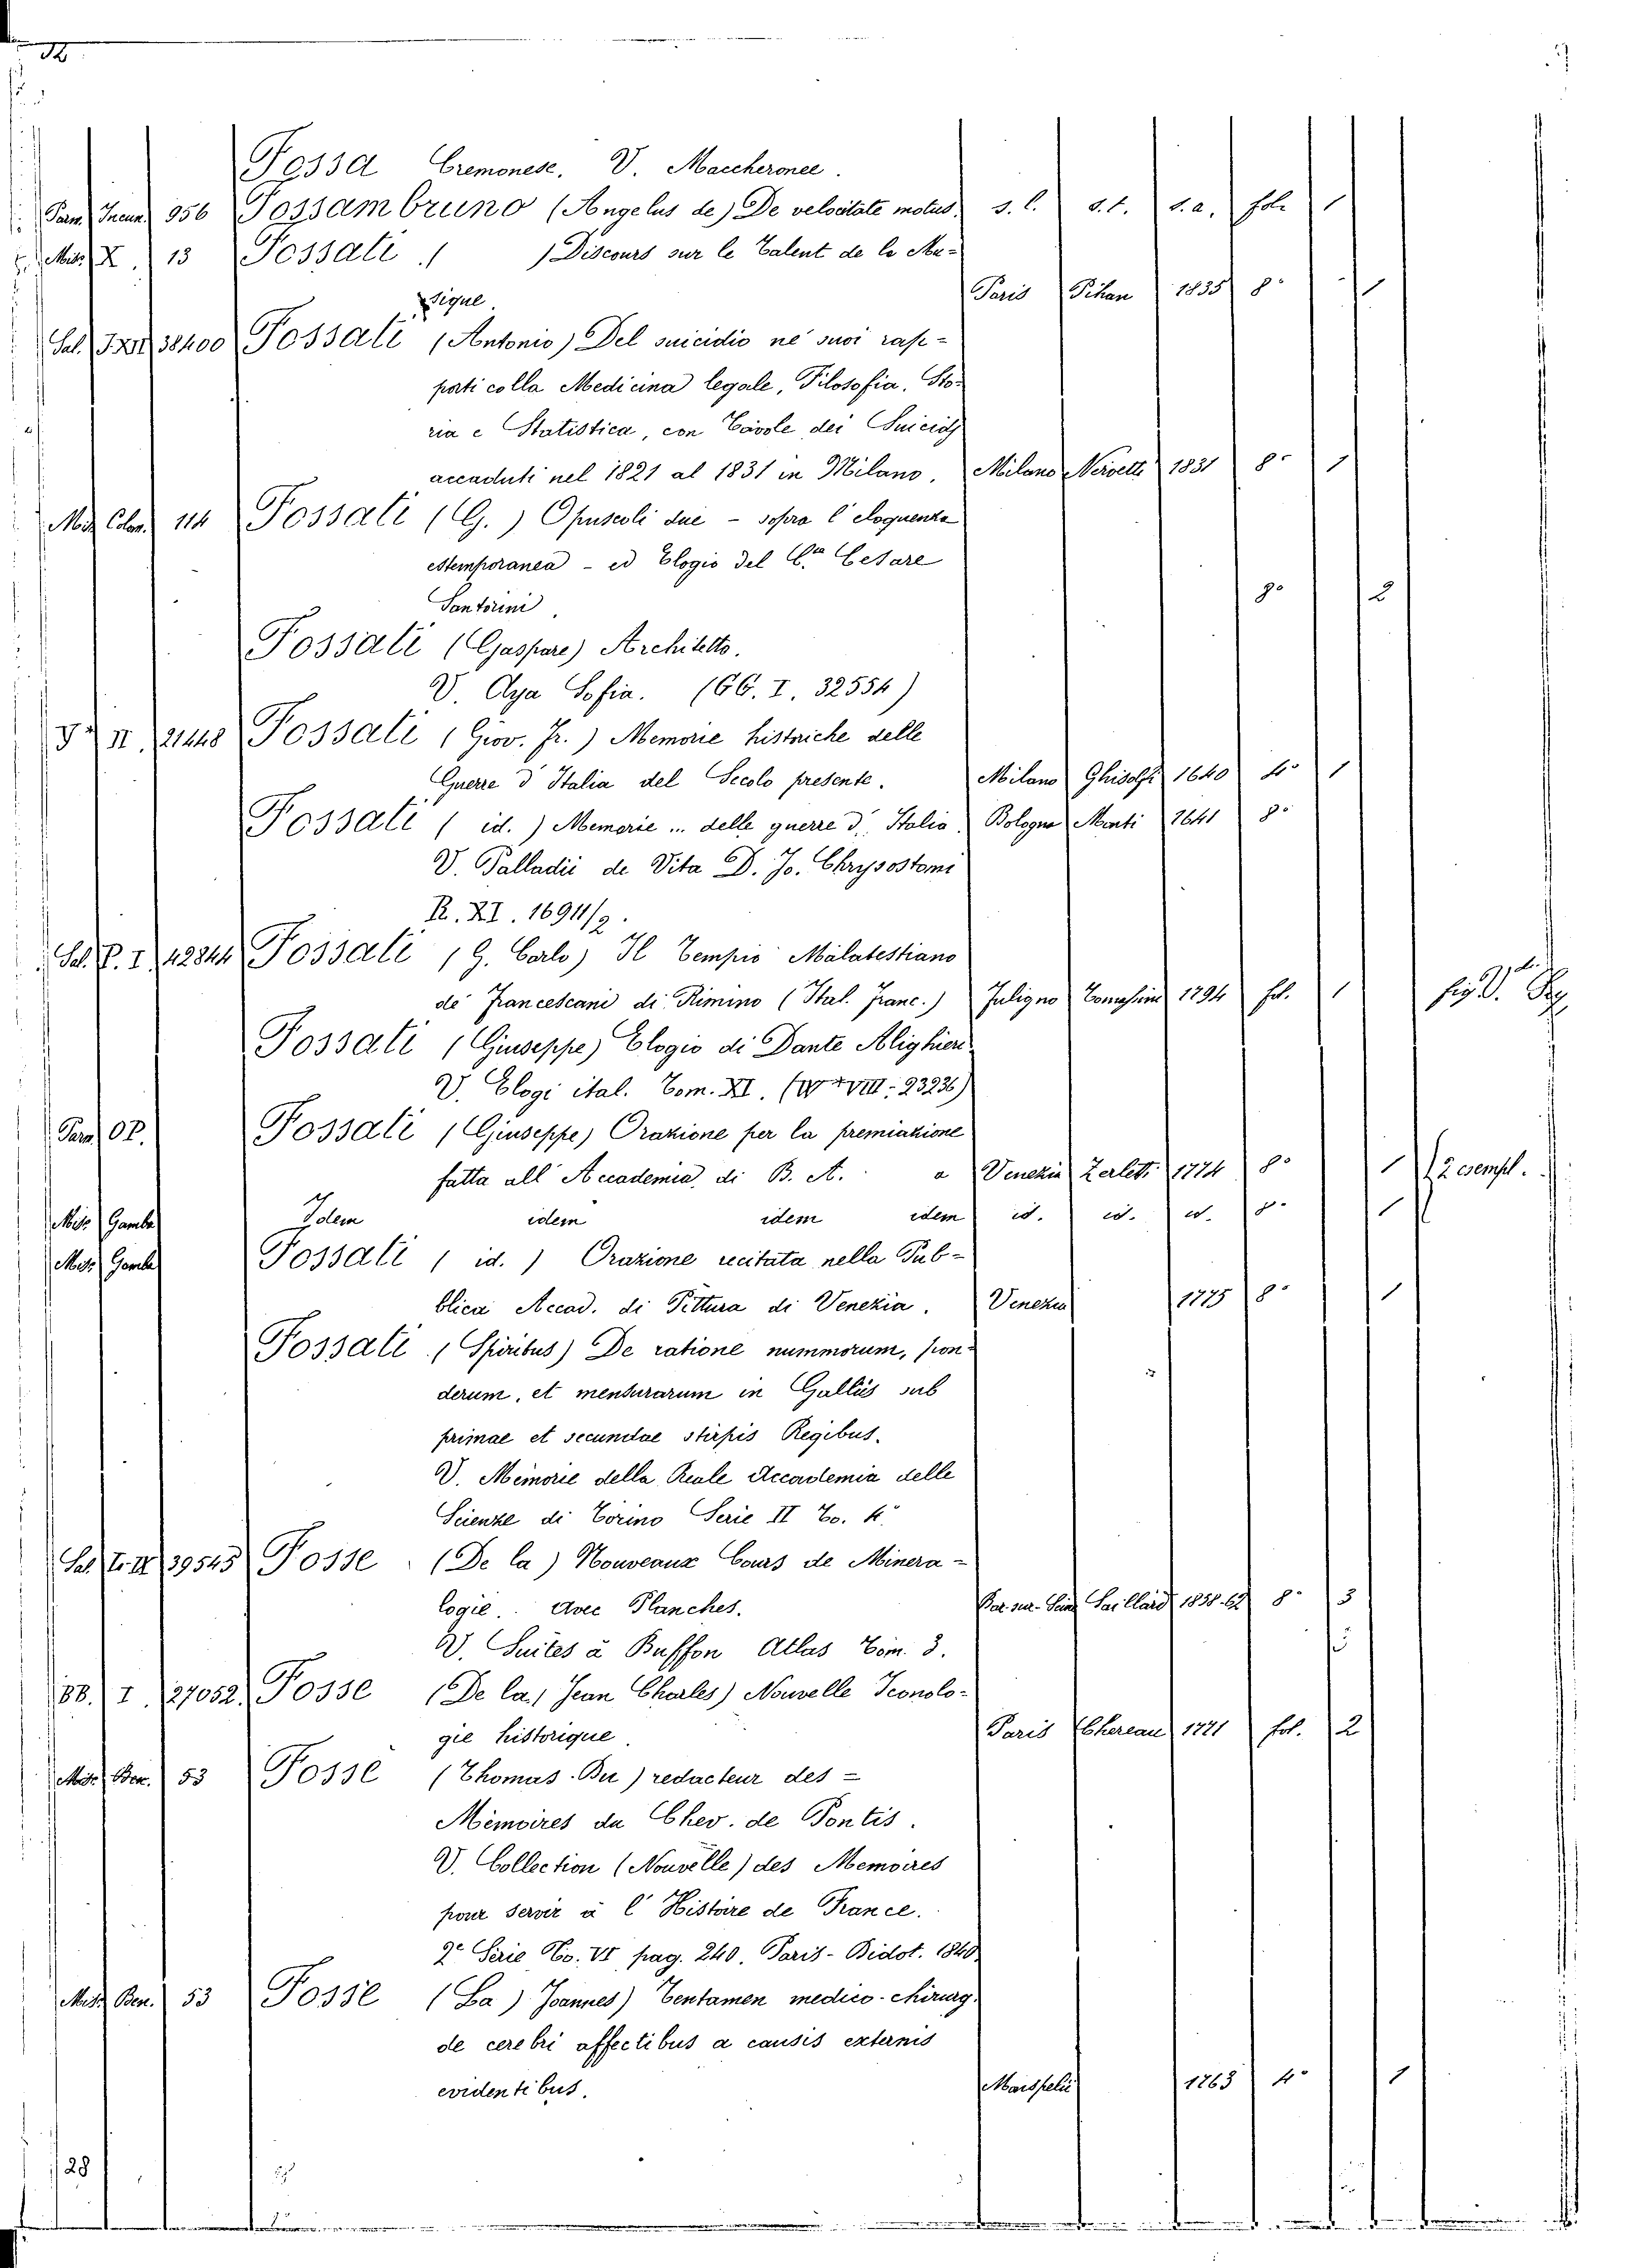 32
Fossa Cremonese. V. Maccheronee.
Parm. Incun. 956 Fossambruno (Angelus de) De velocitate motus. s. l. s. t. s. a. fol. 1
Misc. X. 13 Fossati ( ) Discours sur le Talent de la Mu-
sique. Paris Pihan 1835 8° 1
Sal. 38400 Fossati (Antonio) Del suicidio ne' suoi rap-
porti colla Medicina legale, Filosofia, Sto-
ria e Statistica, con Tavole dei Suicidj
accaduti nel 1821 al 1831 in Milano. Milano Nervetti 1831 8° 1
Misc. Colom. 114 Fossati (G.) Opuscoli due - sopra l'eloquenza
estemporanea - ed Elogio del C.te Cesare
Santorini 8° 2
Fossati (Gaspare) Architetto.
V. Aya Sofia. (GG. I. 32554)
II. 21448 Fossati (Giov. Fr.) Memorie historiche delle
Guerre d'Italia del Secolo presente. Milano Ghisolfi 1640 4° 1
Fossati ( id. ) Memorie ... delle guerre d'Italia. Bologna Monti 1641 8°
V. Palladii de Vita D. Jo. Chrysostomi
R. XI. 16911/2.
Sal. P. I. 42844 Fossati (G. Carlo) Il Tempio Malatestiano
de' Francescani di Rimino (Ital. Franc.) Fuligno Tomassini 1794 fol. 1 fig.
Fossati (Giuseppe) Elogio di Dante Alighieri
V. Elogi ital. Tom. XI. (W XVIII. 23236)
Parm. OP. Fossati (Giuseppe) Orazione per la premiazione
fatta all'Accademia di B. A. a Venezia Zerletti 1774 8° 1 2 esempl.
Misc. Gamba Idem idem idem idem id. id. id. 8° 1
Misc. Gamba Fossati ( id. ) Orazione recitata nella Pub-
blica Accad. di Pittura di Venezia. Venezia 1775 8° 1
Fossati (Spiritus) De ratione nummorum, pon-
derum, et mensurarum in Galliis sub
primae et secundae stirpis Regibus.
V. Memorie della Reale Accademia delle
Scienze di Torino Serie II To. 4°
Sal. Tr. IX 39545 Fosse (De la) Nouveaux Cours de Minera-
logie. Avec Planches. Bar-sur-Seine Saillard 1858-62 8° 3
V. Suites à Buffon Atlas Tom. 3.
BB. I 27052. Fosse (De la) Jean Charles) Nouvelle Iconolo-
gie historique. Paris Chereau 1771 fol. 2
Misc. Ben. 53 Fosse (Thomas Du) redacteur des =
Mémoires du Chev. de Pontis.
V. Collection (Nouvelle) des Memoires
pour servir à l'Histoire de France.
2e Serie To. VI pag. 240. Paris - Didot. 1840
Misc. Ben. 53 Fosse (La) Joannes) Tentamen medico-chirurg.
de cerebri affectibus a causis externis
evidentibus. Monspelii 1763 4° 1
28